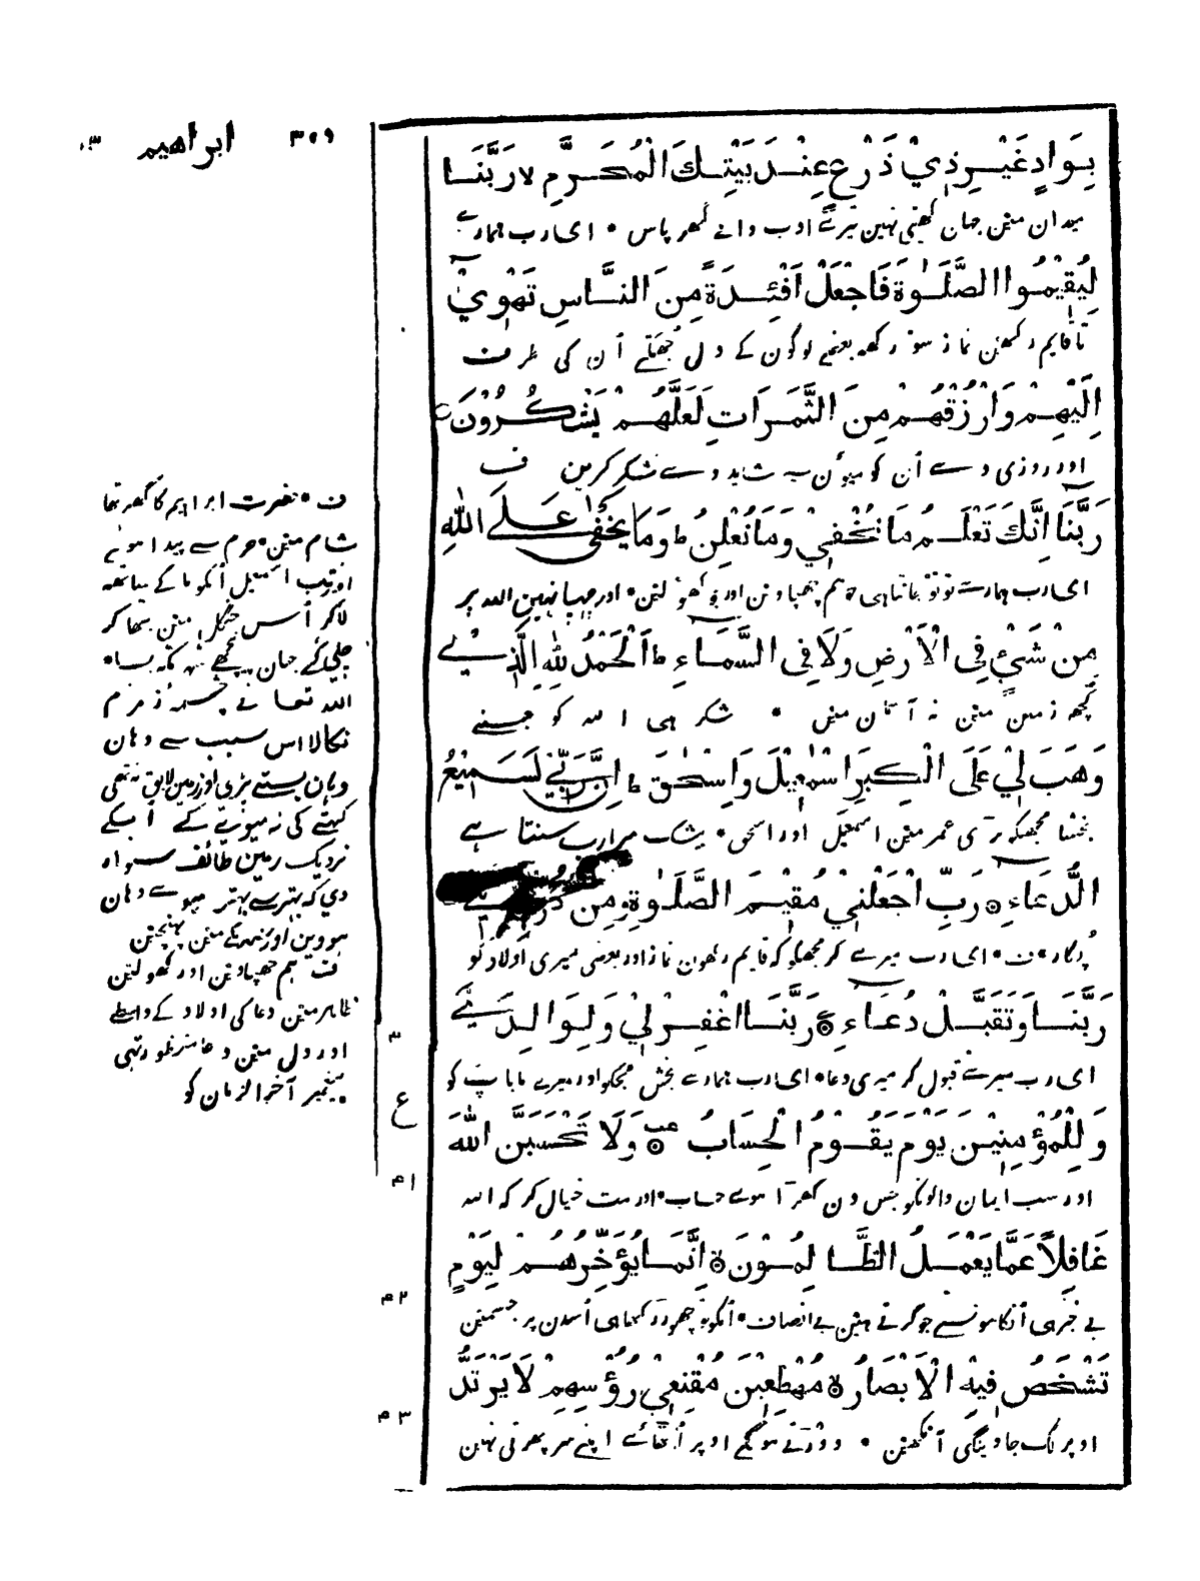 ابراهيم
بِوَادٍ غَيْرِ ذِيْ ذَرْعٍ عِنْدَ بَيْتِكَ الْمُحَرَّمِ لا رَبَّنَا
میدان مین جہان کھیتی نہین تیرے ادب والے گھر پاس • ای رب ہمارے
لِيُقِيْمُوا الصَّلٰوةَ فَاجْعَلْ اَفْئِدَةً مِنَ النَّاسِ تَهْوِيْ
تا قایم رکھین نماز سو رکھہ بعضے لوگون کے دل جُھکتے اُن کی طرف
اِلَيْهِمْ وَارْزُقْهُمْ مِنَ الثَّمَرَاتِ لَعَلَّهُمْ يَشْكُرُوْنَ
اور روزی دے اُن کو میوُن سے شاید وے شکر کرین ف
رَبَّنَا اِنَّكَ تَعْلَمُ مَا نُخْفِيْ وَمَا نُعْلِنُ ط وَمَا يَخْفٰى عَلَے اللهِ
ای رب ہمارے تو تو جانتا ہی جو ہم چھپاوین اور جو کھولین • اور چھپا نہین الله پر
مِنْ شَيْءٍ فِي الْاَرْضِ وَلَا فِي السَّمَاءِ ط اَلْحَمْدُ لِلّٰهِ الَّذِيْ
کچھہ زمین مین نہ آسمان مین • شکر ہی الله کو جسنے
وَهَبَ لِيْ عَلَى الْكِبَرِ اِسْمٰعِيْلَ وَاِسْحٰقَ ط اِنَّ رَبِّيْ لَسَمِيْعُ
بخشا مجھکو بڑی عمر مین اسمعیل اور اسحق • بیشک میرا رب سنتا ہے
الدُّعَاءِ ۝ رَبِّ اجْعَلْنِيْ مُقِيْمَ الصَّلٰوةِ وَمِنْ
پُکار • ف • ای رب میرے کر مجھکو کہ قایم رکھون نماز اور بعضی میری اولاد کو
رَبَّنَا وَتَقَبَّلْ دُعَاءِ ۝ رَبَّنَا اغْفِرْ لِيْ وَلِوَالِدَيَّ
ای رب میرے قبول کر میری دعا • ای رب ہمارے بخش مجکو اور میرے ما باپ کو
وَلِلْمُؤْمِنِيْنَ يَوْمَ يَقُوْمُ الْحِسَابُ ۝ وَلَا تَحْسَبَنَّ اللهَ
اور سب ایمان والونکو جس دن کھڑا ہووے حساب • اور مت خیال کر کہ الله
غَافِلًا عَمَّا يَعْمَلُ الظَّالِمُوْنَ ۝ اِنَّمَا يُؤَخِّرُهُمْ لِيَوْمٍ
بے خبر ہی اُنکامونسے جو کرتے ہین بے انصاف • اُنکو تو چھوڑ رکھا ہی اُسدن پر جسمین
تَشْخَصُ فِيْهِ الْاَبْصَارُ ۝ مُهْطِعِيْنَ مُقْنِعِيْ رُؤُسِهِمْ لَا يَرْتَدُّ
اوپر لگ جاوینگی آنکھین • دوڑتے ہونگے اوپر اُٹھائے اپنے سر پھرتی نہین
ف • حضرت ابراہیم کا گھر تھا
شام مین • حرم سے پیدا ہوئے
اسمعیل اُنکو ما کے ساتھہ
لاکر اُس جنگل مین بٹھا کر
چلے گئے جہان پیچھے شہر مکہ بسا •
الله تعا نے چشمہ زمزم
نکالا اس سبب سے وہان
وہان بستے پڑی اور زمین لایق نہ تھی
کھیتی کی نہ میوے کے اُسکے
نزدیک زمین طائف سنوار
دی کہ بہتر سے بہتر میوے وہان
ہووین اور شہر مکے مین پہنچین
ف ہم چھپاوین اور کھولین
ظاہر مین دعا کی اولاد کے واسطے
اور دل مین دعا منظور تھی
پیغمبر آخر الزمان کو
۳
ع
۴۱
۴۲
۴۳